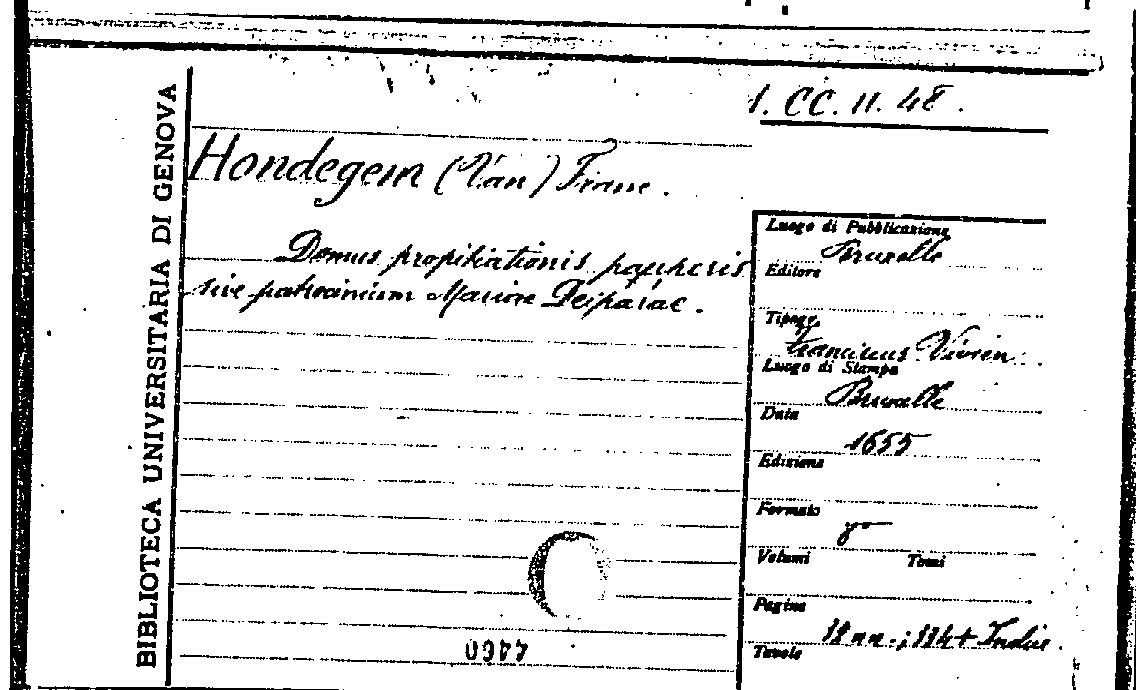 1. CC. 11. 48.
BIBLIOTECA UNIVERSITARIA DI GENOVA
Hondegem (Van) Franc.
Domus propitiationis pauperis
sive patrocinium Mariae Deiparae.
Luogo di Pubblicazione
Bruxelle
Editore
Tipogr.
Franciscus Vivien
Luogo di Stampa
Bruxelle
Data
1655
Edizione
Formato
8°
Volumi Tomi
Pagine
18 nn.; + Indice
Tavole